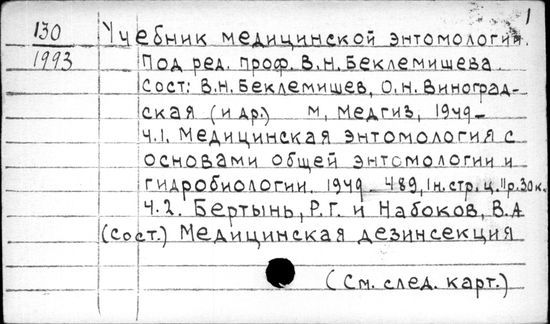 1
130 Учебник медицинской энтомологии.
1993 Под ред. проф. В.Н. Беклемишева.
Сост: В.Н. Беклемишев, О.Н. Виноград-
ская (и др.) М, Медгиз, 1949-
ч.1. Медицинская энтомология с
основами общей энтомологии и
гидробиологии. 1949 489, 1н.стр. ц. 11р.30к.
ч.2. Бертынь, Р.Г. и Набоков, В.А
(сост.) Медицинская дезинсекция
(См. след. карт.)